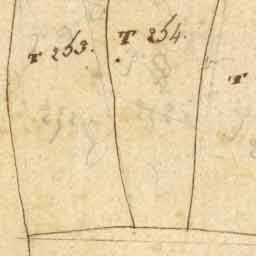 T 253.
T 254.
T